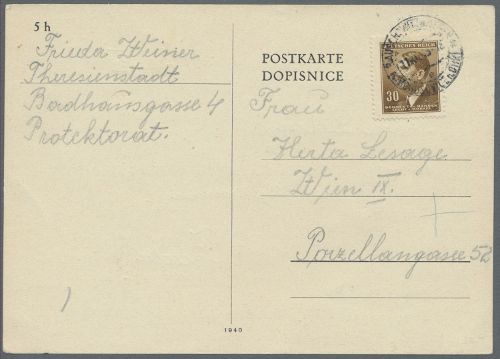 5 h
Frieda Weiner
Theresienstadt
Badhausgasse 4
Protektorat.
POSTKARTE
DOPISNICE
DEUTSCHES REICH
30
Frau
Herta Lesage
Wien IX.
Porzellangasse 52
1940